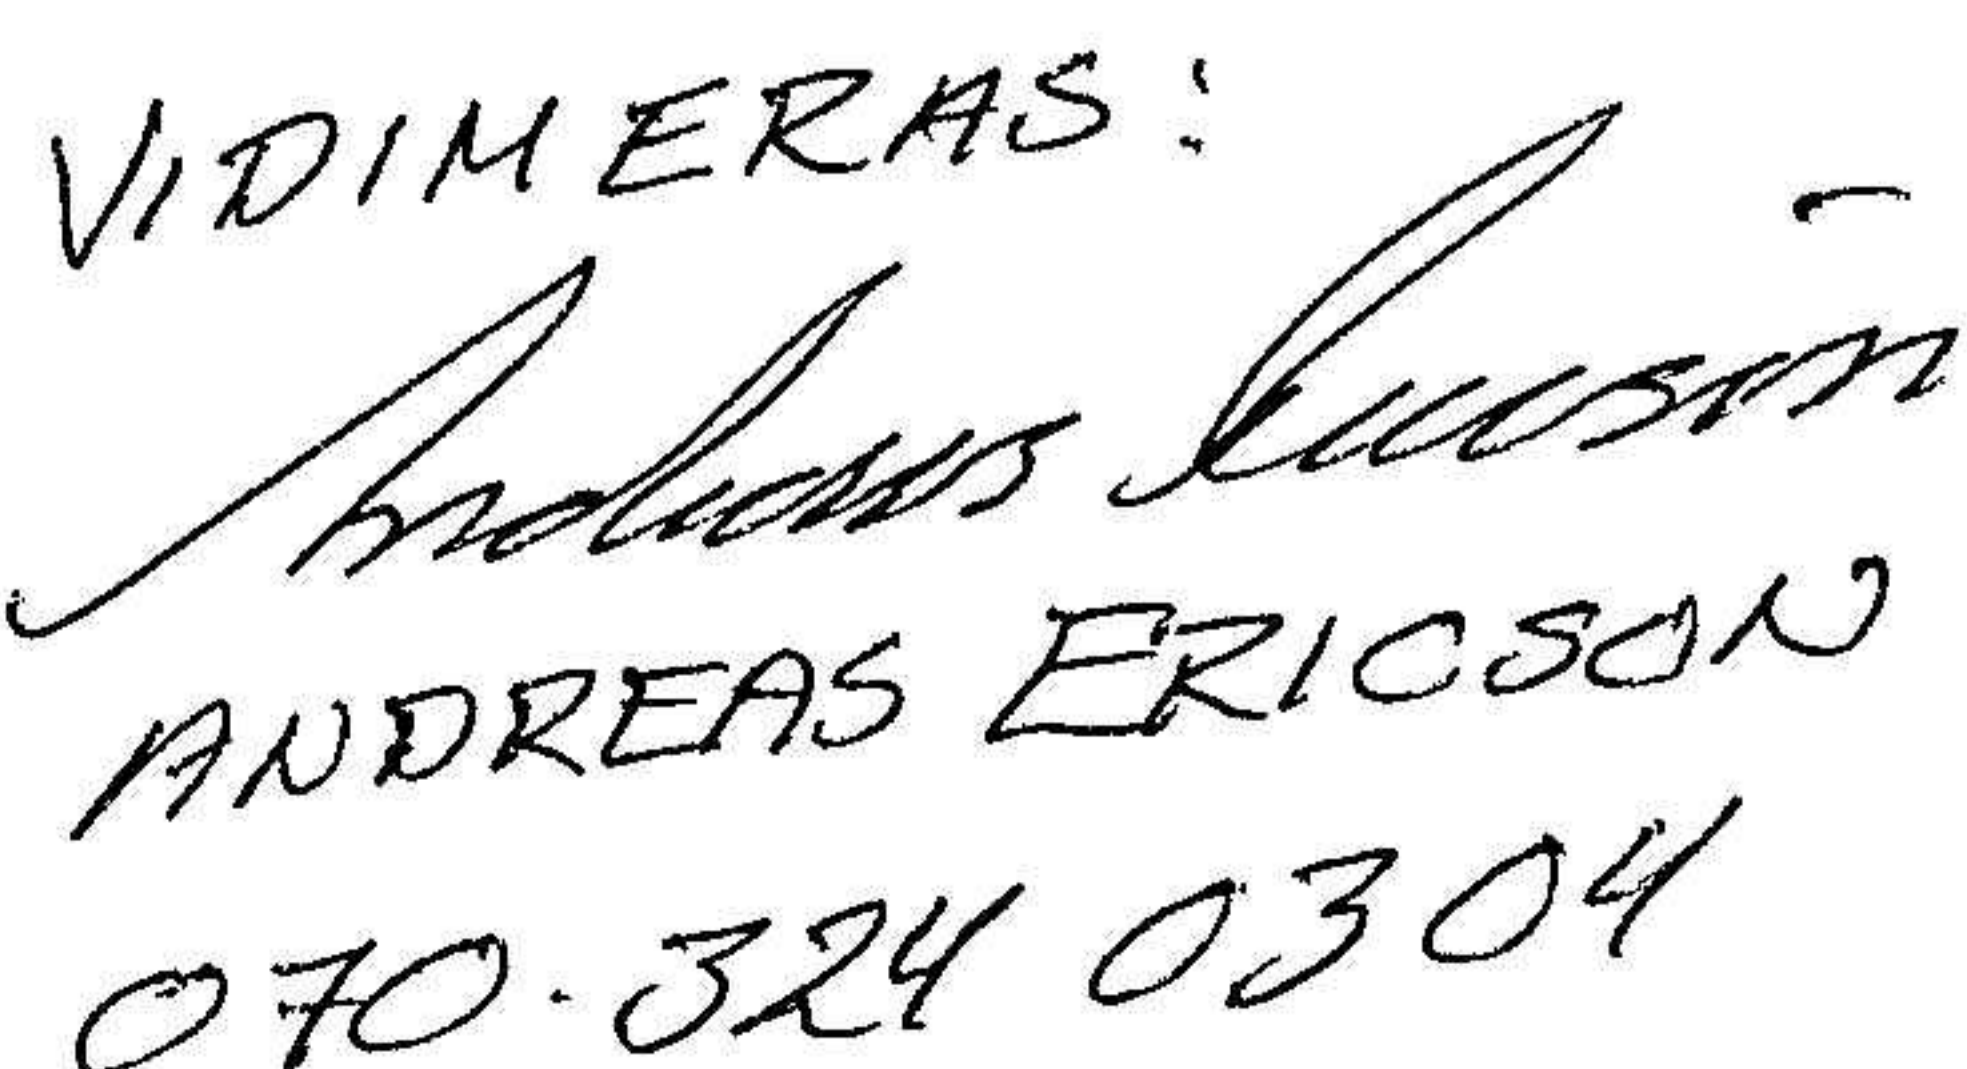 VIDIMERAS:
Andreas Ericson
ANDREAS ERICSON
070-324 0304